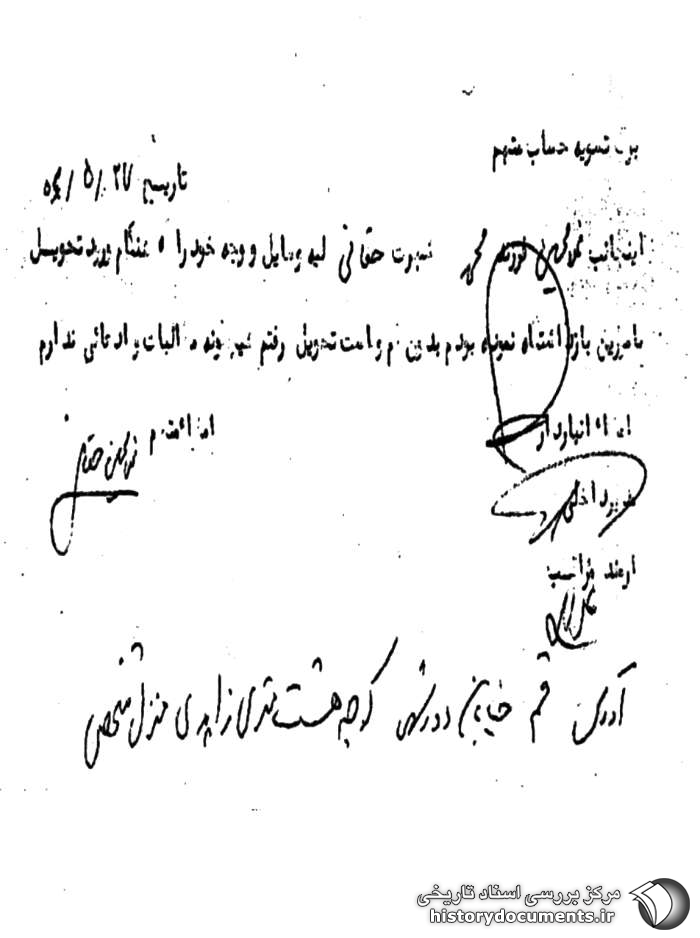 برگ تسویه حساب متهم
تاریخ ۲۷ / ۵ /
اینجانب فرزند محمد شهرت حقانی کلیه وسایل و وجه خود را که هنگام ورود تحویل
مامورین بازداشتگاه نموده بودم بدون کم و کاست تحویل گرفتم هیچگونه مطالبات و ادعائی ندارم
امضاء انباردار
امضا متهم
مدیر داخلی
کارمند مراقب
آدرس قم خیابان دورشهر کوچه هشت متری زاهدی منزل شخصی
مرکز بررسی اسناد تاریخی
historydocuments.ir